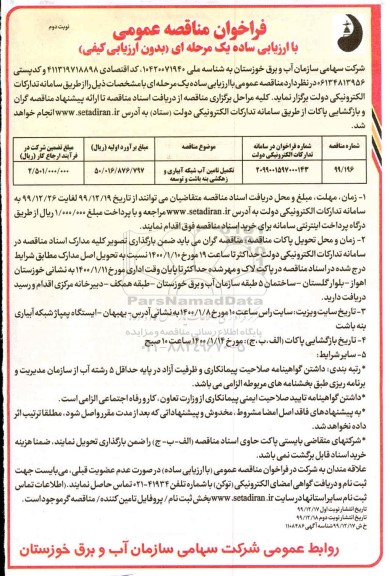 نوبت دوم
فراخوان مناقصه عمومی
با ارزیابی ساده یک مرحله ای (بدون ارزیابی کیفی)
شرکت سهامی سازمان آب و برق خوزستان به شناسه ملی ۱۰۴۲۰۰۷۱۹۴۰ کد اقتصادی ۴۱۱۳۱۹۷۱۸۸۹۸ و کدپستی
۰۶۱۳۴۸۱۳۹۵۶ در نظر دارد مناقصه عمومی با ارزیابی ساده یک مرحله ای با مشخصات ذیل را از طریق سامانه تدارکات
الکترونیکی دولت برگزار نماید. کلیه مراحل برگزاری مناقصه از دریافت اسناد مناقصه تا ارائه پیشنهاد مناقصه گران
و بازگشایی پاکات از طریق سامانه تدارکات الکترونیکی دولت (ستاد) به آدرس www.setadiran.ir انجام خواهد
شد.
شماره مناقصه | شماره فراخوان در سامانه تدارکات الکترونیکی دولت | موضوع مناقصه | مبلغ برآورد اولیه (ریال) | مبلغ تضمین شرکت در فرآیند ارجاع کار (ریال)
۹۹/۱۹۶ | ۲۰۹۹۰۰۱۵۹۷۰۰۰۱۴۳ | تکمیل تامین آب شبکه آبیاری و زهکشی بنه باشت و توسعه | ۵۰/۰۱۶/۸۷۶/۷۹۷ | ۲/۵۰۱/۰۰۰/۰۰۰
۱- زمان، مهلت، مبلغ و محل دریافت اسناد مناقصه متقاضیان می توانند از تاریخ ۹۹/۱۲/۱۹ لغایت ۹۹/۱۲/۲۶ به
سامانه تدارکات الکترونیکی دولت به آدرس www.setadiran.ir مراجعه و با پرداخت مبلغ ۱/۰۰۰/۰۰۰ ریال از طریق
درگاه پرداخت اینترنتی سامانه برای خرید اسناد مناقصه فوق اقدام نمایند.
۲- زمان و محل تحویل پاکات مناقصه: مناقصه گران می باید ضمن بارگذاری تصویر کلیه مدارک اسناد مناقصه در
سامانه تدارکات الکترونیکی دولت حداکثر تا ساعت ۱۹ مورخ ۱۴۰۰/۱/۱۰ نسبت به تحویل اصل مدارک مطابق شرایط
درج شده در اسناد مناقصه در پاکت لاک و مهر شده حداکثر تا پایان وقت اداری مورخ ۱۴۰۰/۱/۱۱ به نشانی خوزستان
اهواز - بلوار گلستان - ساختمان ۵ طبقه سازمان آب و برق خوزستان - طبقه همکف - دبیرخانه مرکزی اقدام و رسید
دریافت دارید.
۳- تاریخ سایت ویزیت: سایت راس ساعت ۱۰ مورخ ۱۴۰۰/۱/۸ به نشانی آدرس- بهبهان - ایستگاه پمپاژ شبکه آبیاری
بنه باشت
۴- تاریخ بازگشایی پاکات (الف، ب، ج): مورخ ۱۴۰۰/۱/۱۴ ساعت ۱۰ صبح
۵- سایر شرایط:
* رتبه بندی: داشتن گواهینامه صلاحیت پیمانکاری و ظرفیت آزاد در پایه حداقل ۵ رشته آب از سازمان مدیریت و
برنامه ریزی طبق بخشنامه های مربوطه الزامی می باشد.
*داشتن گواهینامه تایید صلاحیت ایمنی پیمانکاری از وزارت تعاون، کار و رفاه اجتماعی الزامی است.
* به پیشنهادهای فاقد اصل امضا مشروط، مخدوش و پیشنهاداتی که بعد از مدت مقرر واصل شود، مطلقا ترتیب اثر
داده نخواهد شد.
* شرکتهای متقاضی بایستی پاکت حاوی اسناد مناقصه (الف-ب-ج) را ضمن بارگذاری تحویل نمایند، ضمنا هزینه
خرید اسناد قابل برگشت نمی باشد.
علاقه مندان به شرکت در فراخوان مناقصه عمومی (با ارزیابی ساده) در صورت عدم عضویت قبلی، می بایست جهت
ثبت نام و دریافت گواهی امضای الکترونیکی (توکن) با شماره تلفن ۴۱۹۳۴-۰۲۱ تماس حاصل نمایند. (اطلاعات تماس
ثبت نام سایر استانها در سایت www.setadiran.ir بخش ثبت نام / پروفایل تامین کننده / مناقصه گر موجود است.
تاریخ انتشار نوبت اول ۹۹/۱۲/۱۷
تاریخ انتشار نوبت دوم ۹۹/۱۲/۱۸
خ ش ۹۹/۱۲/۱۷ شناسه آگهی ۱۱۰۸۴۸۶
روابط عمومی شرکت سهامی سازمان آب و برق خوزستان
ParsNamadData
پایگاه اطلاع رسانی مناقصات و مزایدات